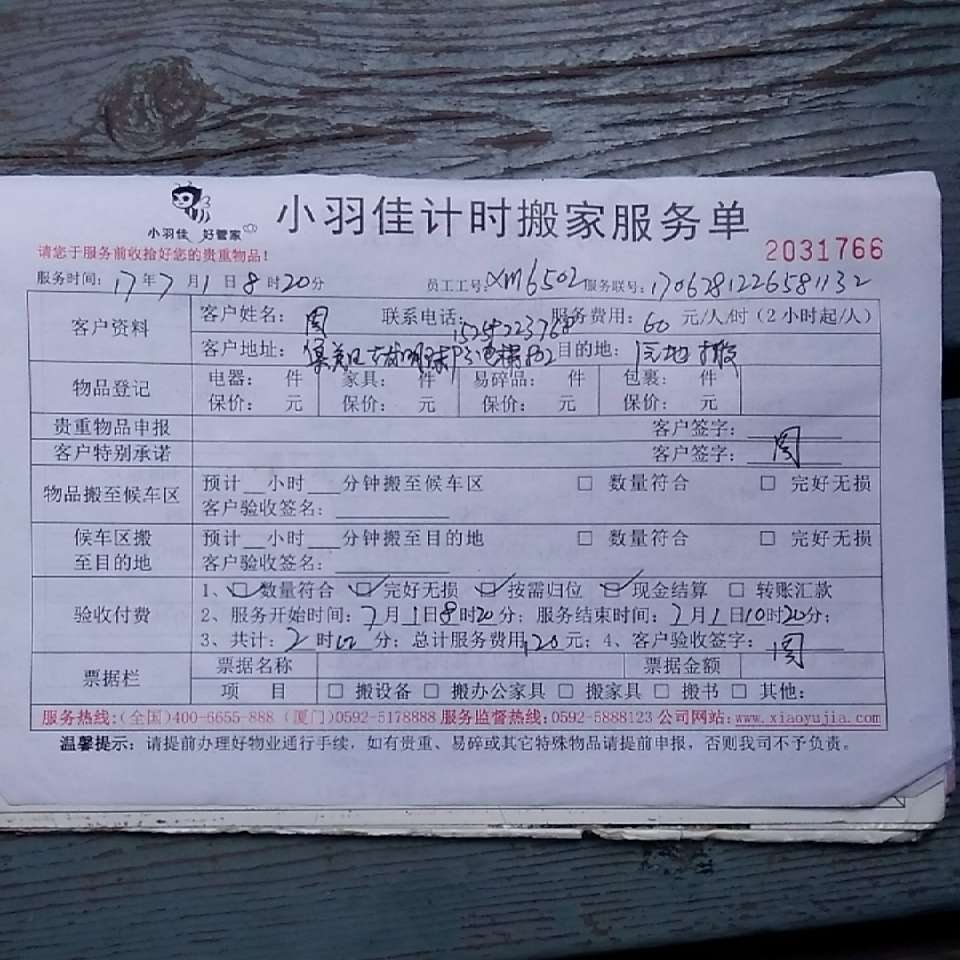 小羽佳 好管家
小羽佳计时搬家服务单
请您于服务前收拾好您的贵重物品！
2031766
服务时间：17年7月1日8时20分 员工工号：XM6502 服务联号：1706281226581132
客户资料 客户姓名：周 联系电话： 服务费用：60元/人/时（2小时起/人）
客户地址：集美区 目的地：
物品登记 电器： 件 家具： 件 易碎品： 件 包裹： 件
保价： 元 保价： 元 保价： 元 保价： 元
贵重物品申报 客户签字：
客户特别承诺 客户签字：周
物品搬至候车区 预计__小时___分钟搬至候车区 □ 数量符合 □ 完好无损
客户验收签名：
候车区搬至目的地 预计__小时___分钟搬至目的地 □ 数量符合 □ 完好无损
客户验收签名：
验收付费 1、☑数量符合 ☑完好无损 ☑按需归位 ☑现金结算 □ 转账汇款
2、服务开始时间：7月1日8时20分；服务结束时间：7月1日10时20分；
3、共计：2时 分；总计服务费用120元；4、客户验收签字：周
票据栏 票据名称 票据金额
项 目 □ 搬设备 □ 搬办公家具 □ 搬家具 □ 搬书 □ 其他：
服务热线：（全国）400-6655-888（厦门）0592-5178888 服务监督热线：0592-5888123 公司网站：www.xiaoyujia.com
温馨提示：请提前办理好物业通行手续，如有贵重、易碎或其它特殊物品请提前申报，否则我司不予负责。